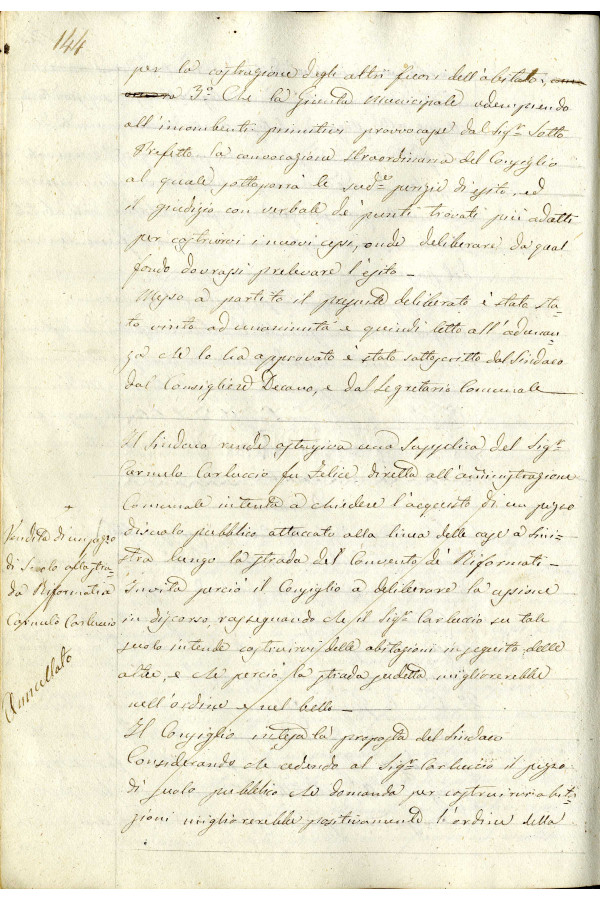 144
per la costruzione degli altri fuori dell'abitato,
3.° Che la Giunta Municipale adempiendo
all'incombenti primitivi provvocasse dal Sig.r Sotto
Prefetto la convocazione straordinaria del Consiglio
al quale sottoporrà le sud.e perizie di esito, ed
il giudizio con verbale de' punti trovati più adatti
per costruirvi i nuovi cessi, onde deliberare da qual
fondo dovrassi prelevare l'esito_
Messo a partito il presente deliberato è stato sta-
to vinto ad unanimità e quindi letto all'adunan-
za che lo ha approvato è stato sottoscritto dal Sindaco
dal Consigliere Decano, e dal Segretario Comunale_
Il Sindaco rende ostensiva una supplica del Sig.r
Carmelo Carluccio fu Felice diretta all'amministrazione
Comunale intenta a chiedere l'acquisto di un pezzo
di suolo pubblico attaccato alla linea delle case a sini-
stra lungo la strada del Convento de' Riformati_
Invita perciò il Consiglio a deliberare la cessione
in discorso, rassegnando che il Sig.r Carluccio su tale
suolo intende costruirvi delle abitazioni in seguito delle
altre, e che perciò la strada sudetta migliorerebbe
nell'ordine e nel bello_
Il Consiglio intesa la proposta del Sindaco
Considerando che cedendo al Sig.r Carluccio il pezzo
di suolo pubblico che domanda per costruirvi abita-
zioni migliorerebbe positivamente l'ordine della
+
Vendita di un pezzo
di Suolo alla stra-
da Riformati a
Carmelo Carluccio
Annullato